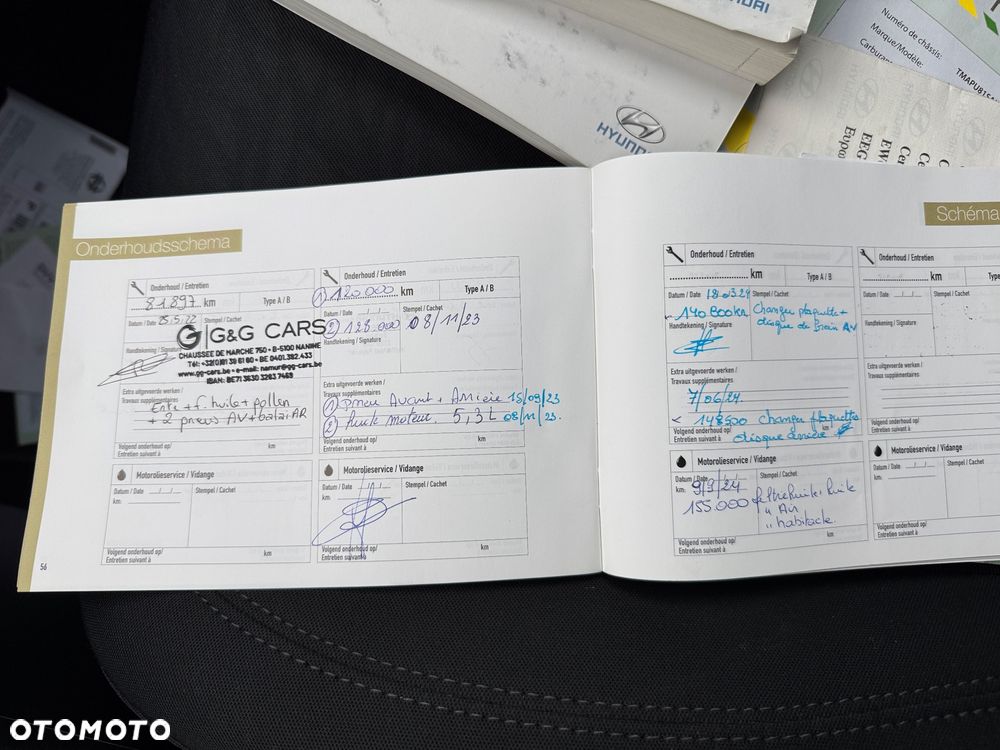 HYUNDAI
HYUNDAI
Numéro de châssis:
Marque/Modèle:
Carburant
TMAPU81SA
Onderhoudsschema
Onderhoud / Entretien
81.897 km
Type A / B
Datum / Date 25.5.22
Stempel / Cachet
G&G CARS
CHAUSSEE DE MARCHE 750 • B-5100 NANINE
Handtekening / Signature
www.gg-cars.be • e-mail: namur@gg-cars.be
IBAN: BE71 3630 3283 7469
Extra uitgevoerde werken /
Travaux supplémentaires
Entr + f. huile + pollen
+ 2 pneus AV + balai AR
Volgend onderhoud op/
Entretien suivant à
km
Motorolieservice / Vidange
Datum / Date
Stempel / Cachet
km:
Volgend onderhoud op/
Entretien suivant à
km
56
Onderhoud / Entretien
① 120.000 km
Type A / B
Datum / Date
Stempel / Cachet
② 128.000 08/11/23
Handtekening / Signature
Extra uitgevoerde werken /
Travaux supplémentaires
① pneu Avant + Arrière 15/09/23
② huile moteur. 5,3 L 08/11/23.
Volgend onderhoud op/
Entretien suivant à
km
Motorolieservice / Vidange
Datum / Date
Stempel / Cachet
km:
Volgend onderhoud op/
Entretien suivant à
km
Schéma
Onderhoud / Entretien
km
Type A / B
Datum / Date 18.03.24
Stempel / Cachet
140 800 km Changer plaquette +
disque de frein AV
Handtekening / Signature
Extra uitgevoerde werken /
Travaux supplémentaires
7/06/24.
148500 changer plaquette
Volgend onderhoud op/
disque arrière
Entretien suivant à
Motorolieservice / Vidange
Datum / Date
Stempel / Cachet
9/9/24
km:
155.000 filtre huile, huile
" Air
" habitacle.
Volgend onderhoud op/
Entretien suivant à
km
Onderhoud / Entretien
km
Type
Datum / Date
Stempel / Cachet
Handtekening / Signature
Extra uitgevoerde werken /
Travaux supplémentaires
Volgend onderhoud op/
Entretien suivant à
Motorolieservice / Vidange
Datum / Date
Stempel / Cachet
km:
Volgend onderhoud op/
Entretien suivant à
OTOMOTO